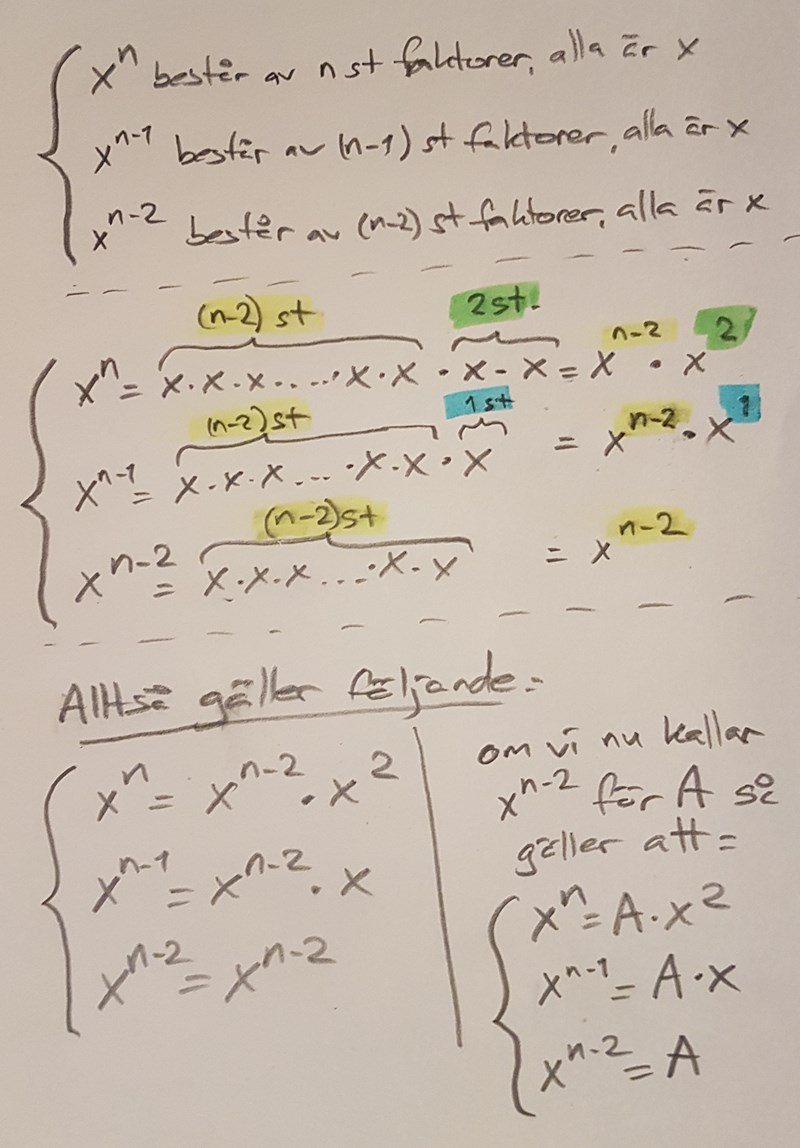 xⁿ består av n st faktorer, alla är x
xⁿ⁻¹ består av (n-1) st faktorer, alla är x
xⁿ⁻² består av (n-2) st faktorer, alla är x
(n-2) st 2 st.
xⁿ = x·x·x·...·x·x · x·x = xⁿ⁻² · x²
(n-2) st 1 st
xⁿ⁻¹ = x·x·x...·x·x · x = xⁿ⁻² · x¹
(n-2) st
xⁿ⁻² = x·x·x...·x·x = xⁿ⁻²
Alltså gäller följande:
xⁿ = xⁿ⁻² · x²
xⁿ⁻¹ = xⁿ⁻² · x
xⁿ⁻² = xⁿ⁻²
om vi nu kallar
xⁿ⁻² för A så
gäller att:
xⁿ = A·x²
xⁿ⁻¹ = A·x
xⁿ⁻² = A